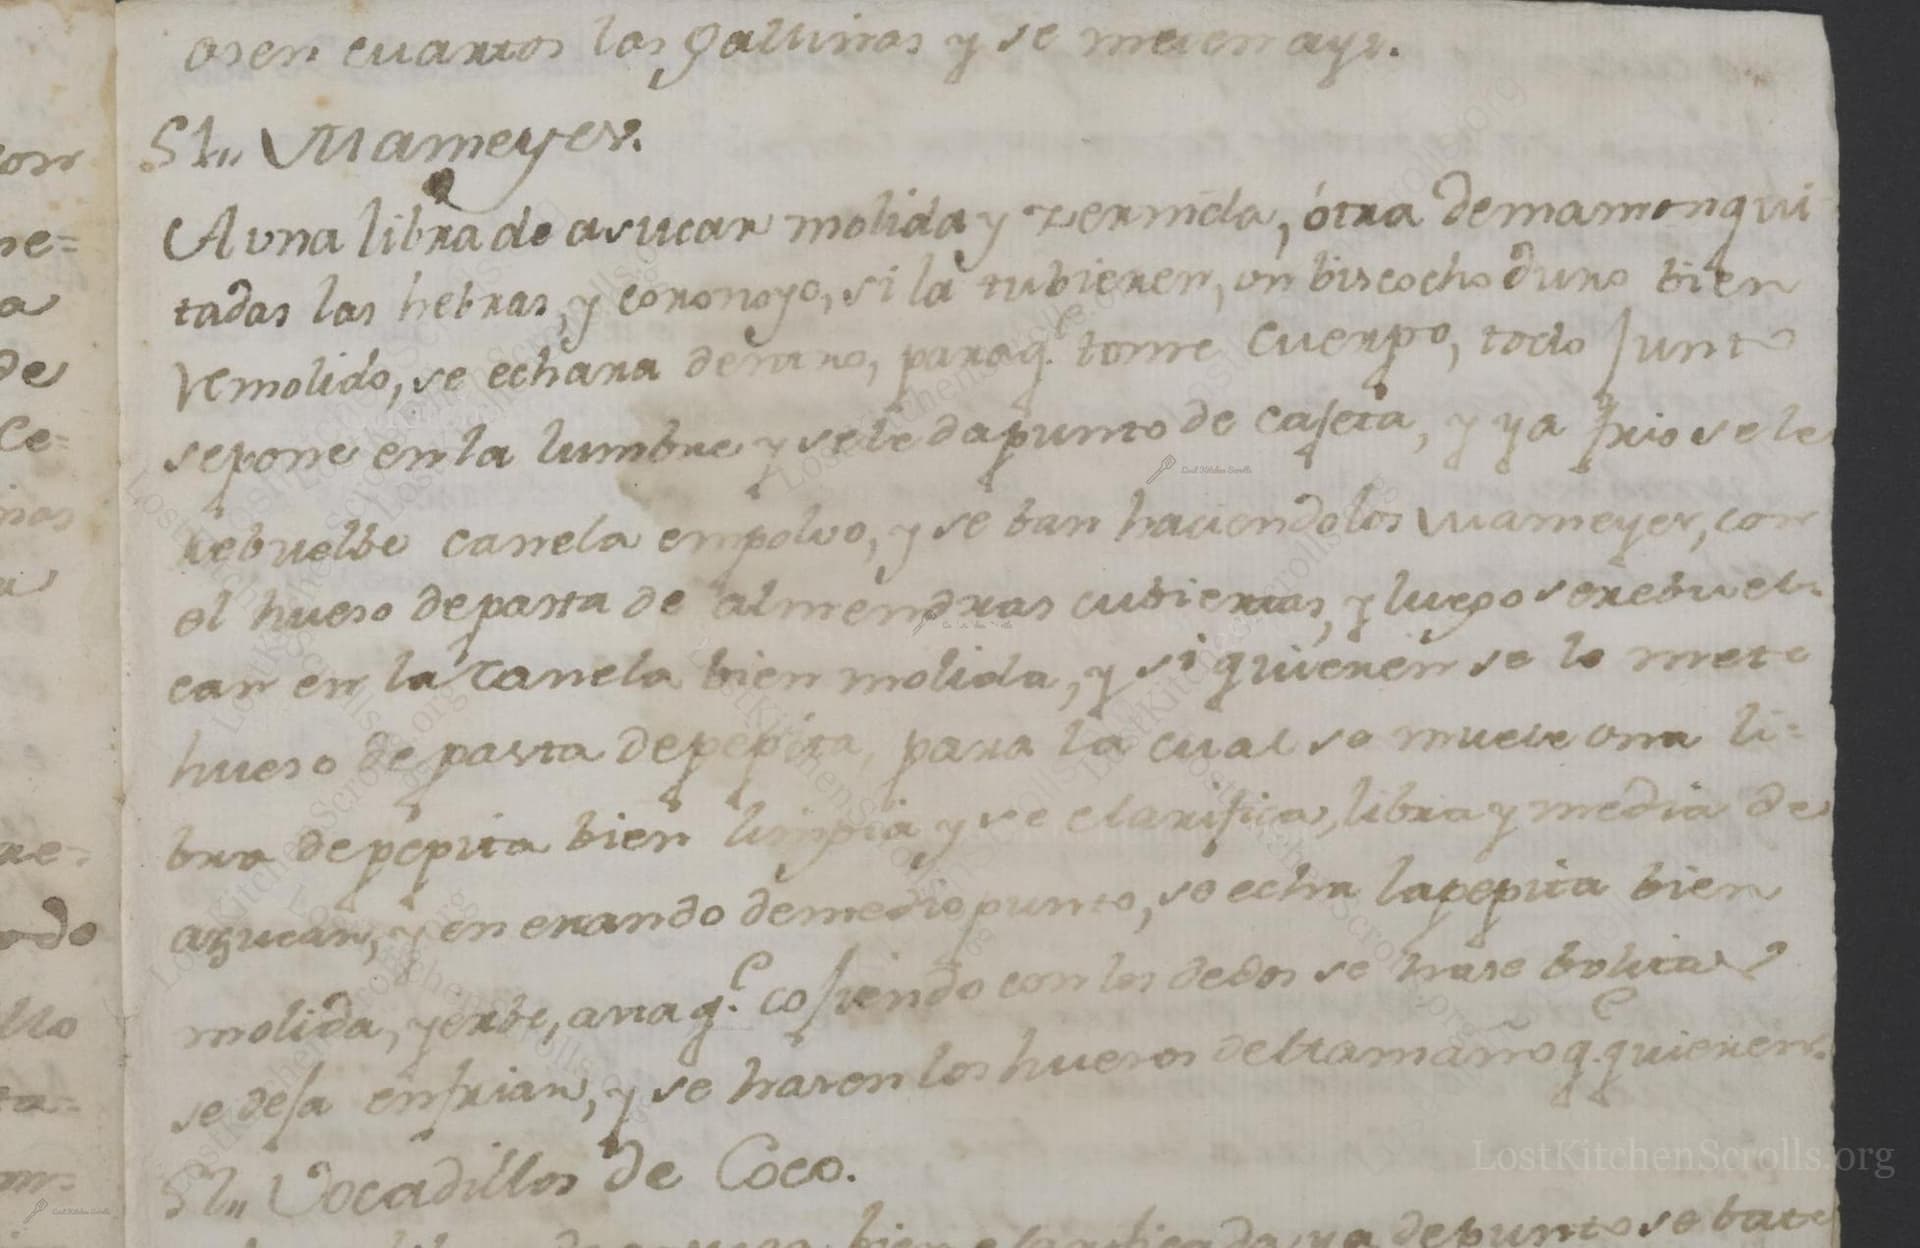 asen cuartos las gallinas y se meten ay.
51,, Mameyes.
A una libra de asucar molida y zernida, ótra de mamon qui
tadas las hebras, y coronoyo, si la tubieren, un biscocho duro bien
remolido, se echara dentro, para q.e tome cuerpo, todo junto
se pone en la lumbre y se le da punto de cajeta, y ya frio se le
rebuelbe canela empolvo, y se ban haciendo los Mameyes, con
el hueso de pasta de almendras cubiertas, y luego se rebuel-
can en la canela bien molida, y si quieren se lo mete
hueso de pasta de pepita, para la cual se muele una li=
bra de pepita bien limpia y se clarifica, libra y media de
azucar, y en estando de medio punto, se echa la pepita bien
molida, y erbe, asta q.e cojiendo con los dedos se hase bolita
se deja enfriar, y se hasen los huesos del tamaño q.e quieren.
51,, Vocadillos de Coco.
bien clarificada, ya de punto se bate
LostKitchenScrolls.org